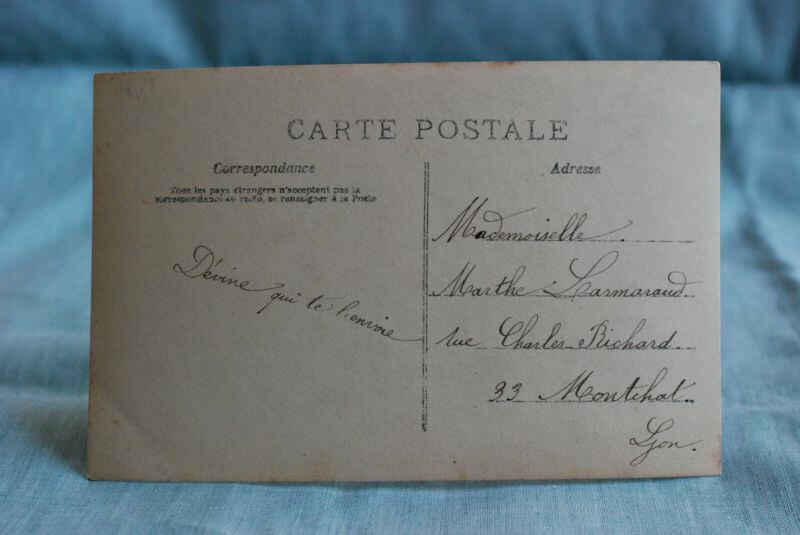 CARTE POSTALE
Correspondance
Tous les pays étrangers n'acceptent pas la
correspondance au recto, se renseigner à la Poste
Dévine qui te l'envoie
Adresse
Mademoiselle
Marthe Larmaraud
rue Charles Richard
33 Montchat
Lyon.